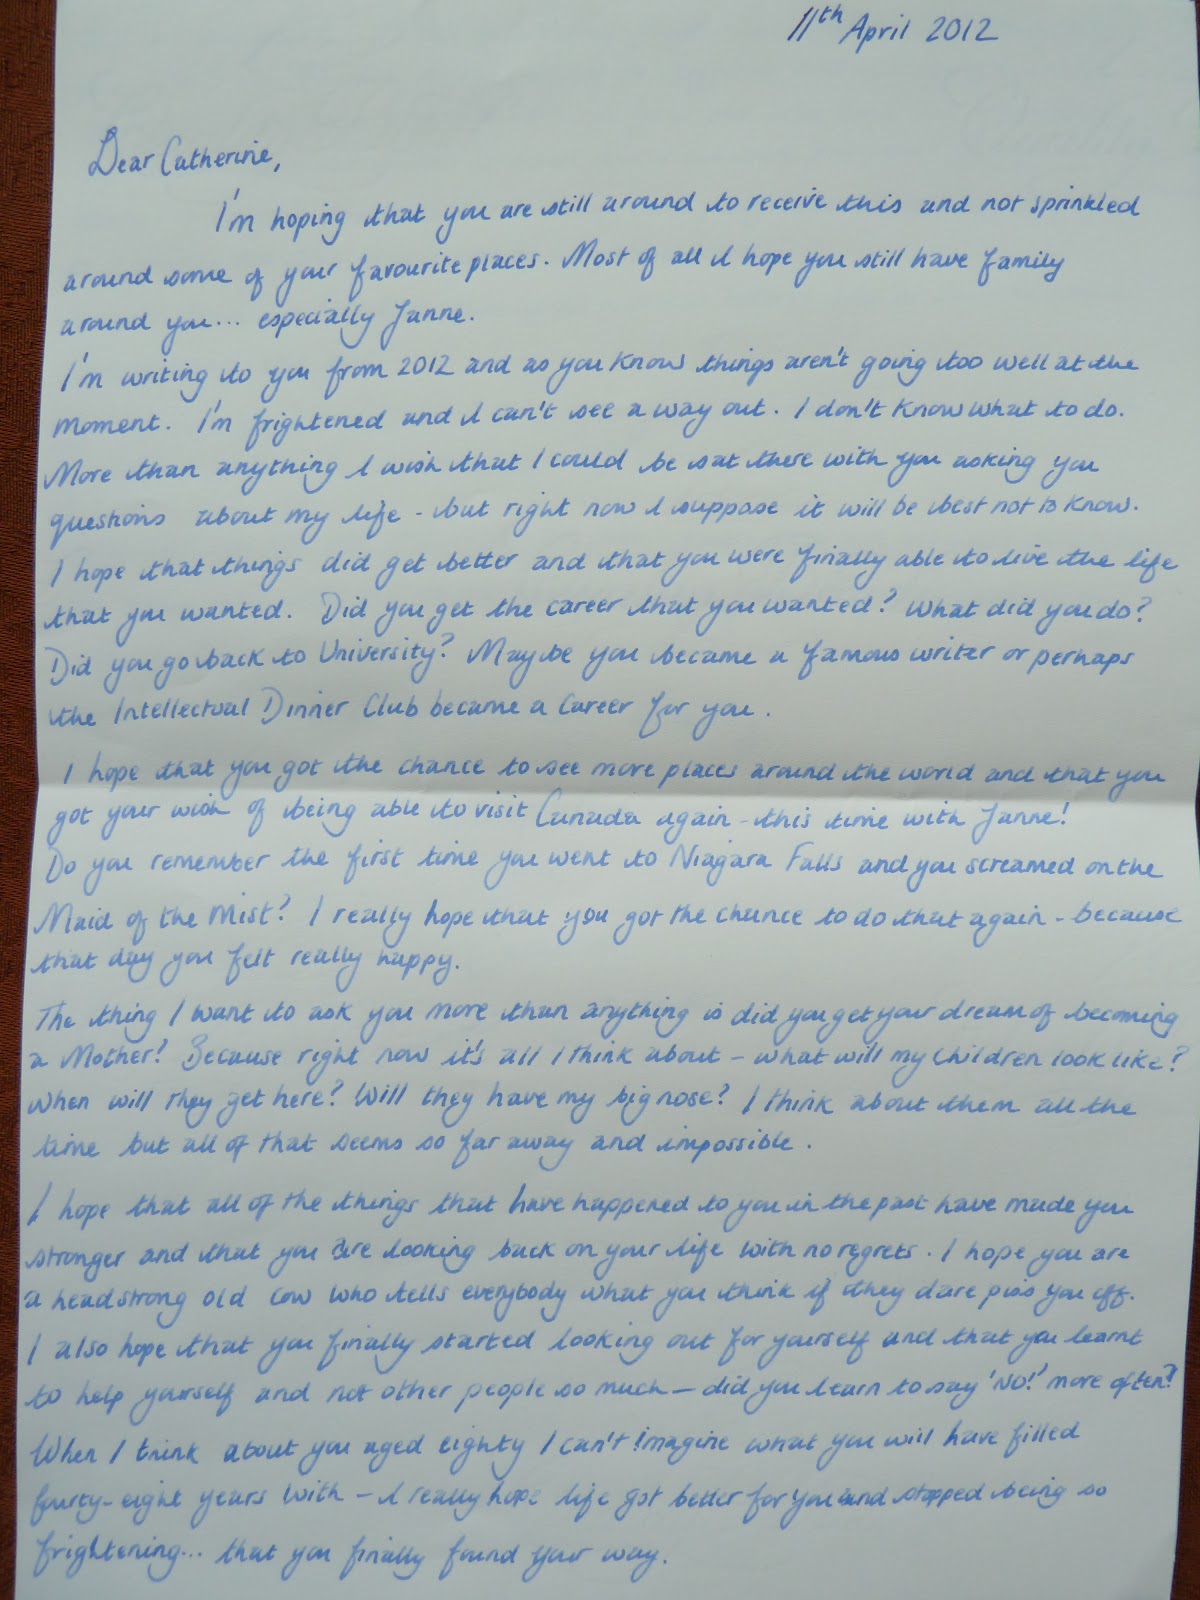 11th April 2012
Dear Catherine,
I'm hoping that you are still around to receive this and not sprinkled
around some of your favourite places. Most of all I hope you still have family
around you... especially Janne.
I'm writing to you from 2012 and as you know things aren't going too well at the
moment. I'm frightened and I can't see a way out. I don't know what to do.
More than anything I wish that I could be sat there with you asking you
questions about my life - but right now I suppose it will be best not to know.
I hope that things did get better and that you were finally able to live the life
that you wanted. Did you get the career that you wanted? What did you do?
Did you go back to University? Maybe you became a famous writer or perhaps
the Intellectual Dinner Club became a career for you.
I hope that you got the chance to see more places around the world and that you
got your wish of being able to visit Canada again - this time with Janne!
Do you remember the first time you went to Niagara Falls and you screamed on the
Maid of the Mist? I really hope that you got the chance to do that again - because
that day you felt really happy.
The thing I want to ask you more than anything is did you get your dream of becoming
a Mother? Because right now it's all I think about - what will my children look like?
When will they get here? Will they have my big nose? I think about them all the
time but all of that seems so far away and impossible.
I hope that all of the things that have happened to you in the past have made you
stronger and that you are looking back on your life with no regrets. I hope you are
a headstrong old cow who tells everybody what you think if they dare piss you off.
I also hope that you finally started looking out for yourself and that you learnt
to help yourself and not other people so much - did you learn to say 'NO!' more often?
When I think about you aged eighty I can't imagine what you will have filled
fourty-eight years with - I really hope life got better for you and stopped being so
frightening... that you finally found your way.